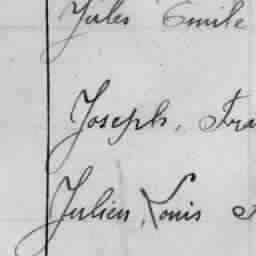 Jules Emile
Joseph, Fra
Julien, Louis